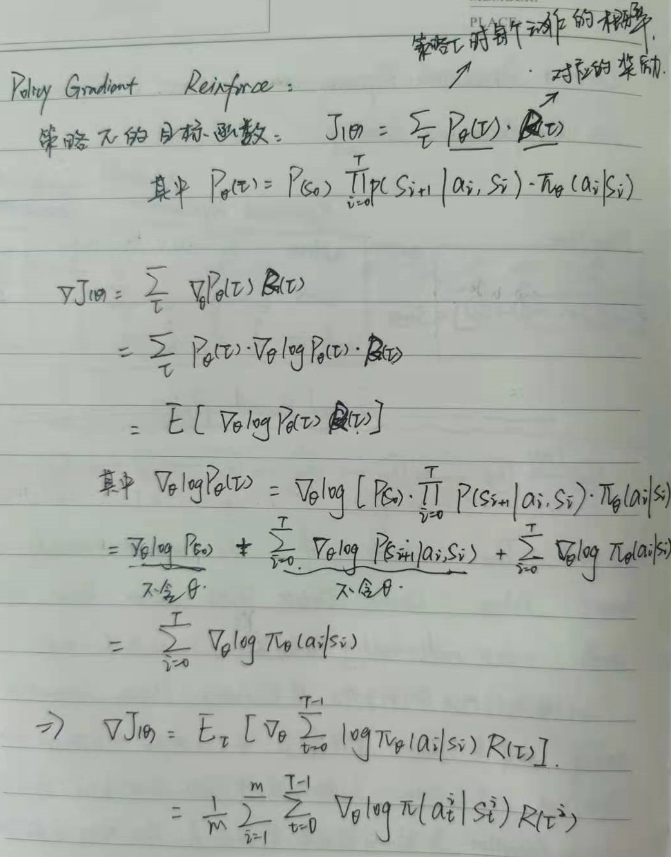 PLACE
策略τ时每个动作的概率.
对应的奖励.
Policy Gradient Reinforce:
策略π的目标函数: J(θ) = Σ_τ P_θ(τ)·R(τ)
其中 P_θ(τ) = P(s₀) ∏_{i=0}^{T} p(s_{i+1}|a_i, s_i)·π_θ(a_i|s_i)
∇J(θ) = Σ_τ ∇_θP_θ(τ) R(τ)
= Σ_τ P_θ(τ)·∇_θ log P_θ(τ)·R(τ)
= E[∇_θ log P_θ(τ) R(τ)]
其中 ∇_θ log P_θ(τ) = ∇_θ log [P(s₀)·∏_{i=0}^{T} P(s_{i+1}|a_i, s_i)·π_θ(a_i|s_i)
= ∇_θ log P(s₀) + Σ_{i=0}^{T} ∇_θ log P(s_{i+1}|a_i, s_i) + Σ_{i=0}^{T} ∇_θ log π_θ(a_i|s_i)
不含θ. 不含θ.
= Σ_{i=0}^{T} ∇_θ log π_θ(a_i|s_i)
⇒ ∇J(θ) = E_τ [∇_θ Σ_{t=0}^{T-1} log π_θ(a_i|s_i) R(τ)].
= 1/m Σ_{i=1}^{m} Σ_{t=0}^{T-1} ∇_θ log π(a_t^i|s_t^i) R(τ^i)